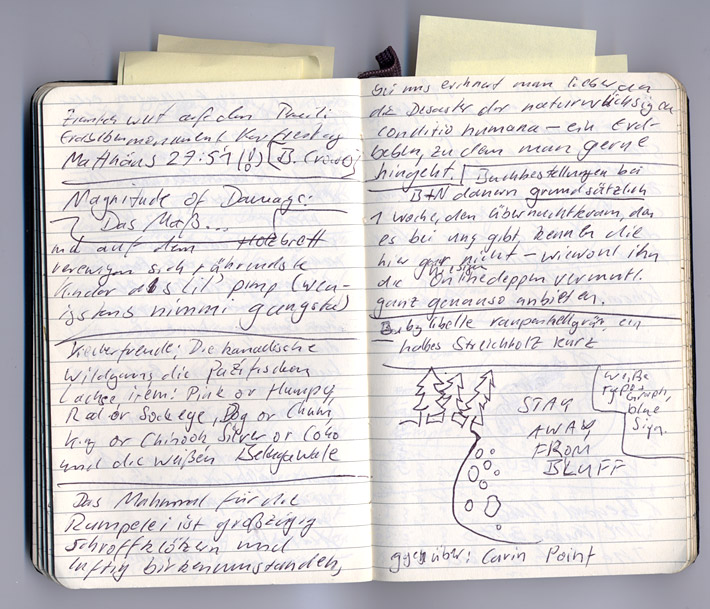 wut auf dem
Erdbebenmonument
Matthäus 27:51 (!)
Magnitude of Damage:
Das Maß...
und auf dem
verewigen sich rührendste
Kinder als lil' pimp (wen-
igstens nimmi gangsta)
Die kanadische
Wildgans, die Pazifischen
Lachse irem: Pink or Humpy,
Red or Sockeye, Dog or Chum,
King or Chinook Silver or Coho
und die weißen Belugawale
Das Mahnmal für die
Rumpelei ist großzügig
schroffklötzern und
luftig birkenumstanden,
bei uns zeichnet man lieber
die Desaster der naturwüchsigen
conditio humana – ein Erd-
beben, zu dem man gerne
hingeht. Buchbestellungen bei
B+N dauern grundsätzlich
1 Woche, den Übernachtkram, den
es bei uns gibt, kennen die
hier gar nicht – wiewohl ihn
die hiesigen Onlinedeppen vermutl.
ganz genauso anbieten.
Babylibelle raupenhellgrün, ein
halbes Streichholz kurz
STAY
AWAY
FROM
BLUFF
weiße
Type
blue
Sign.
gegenüber: Cairn Point